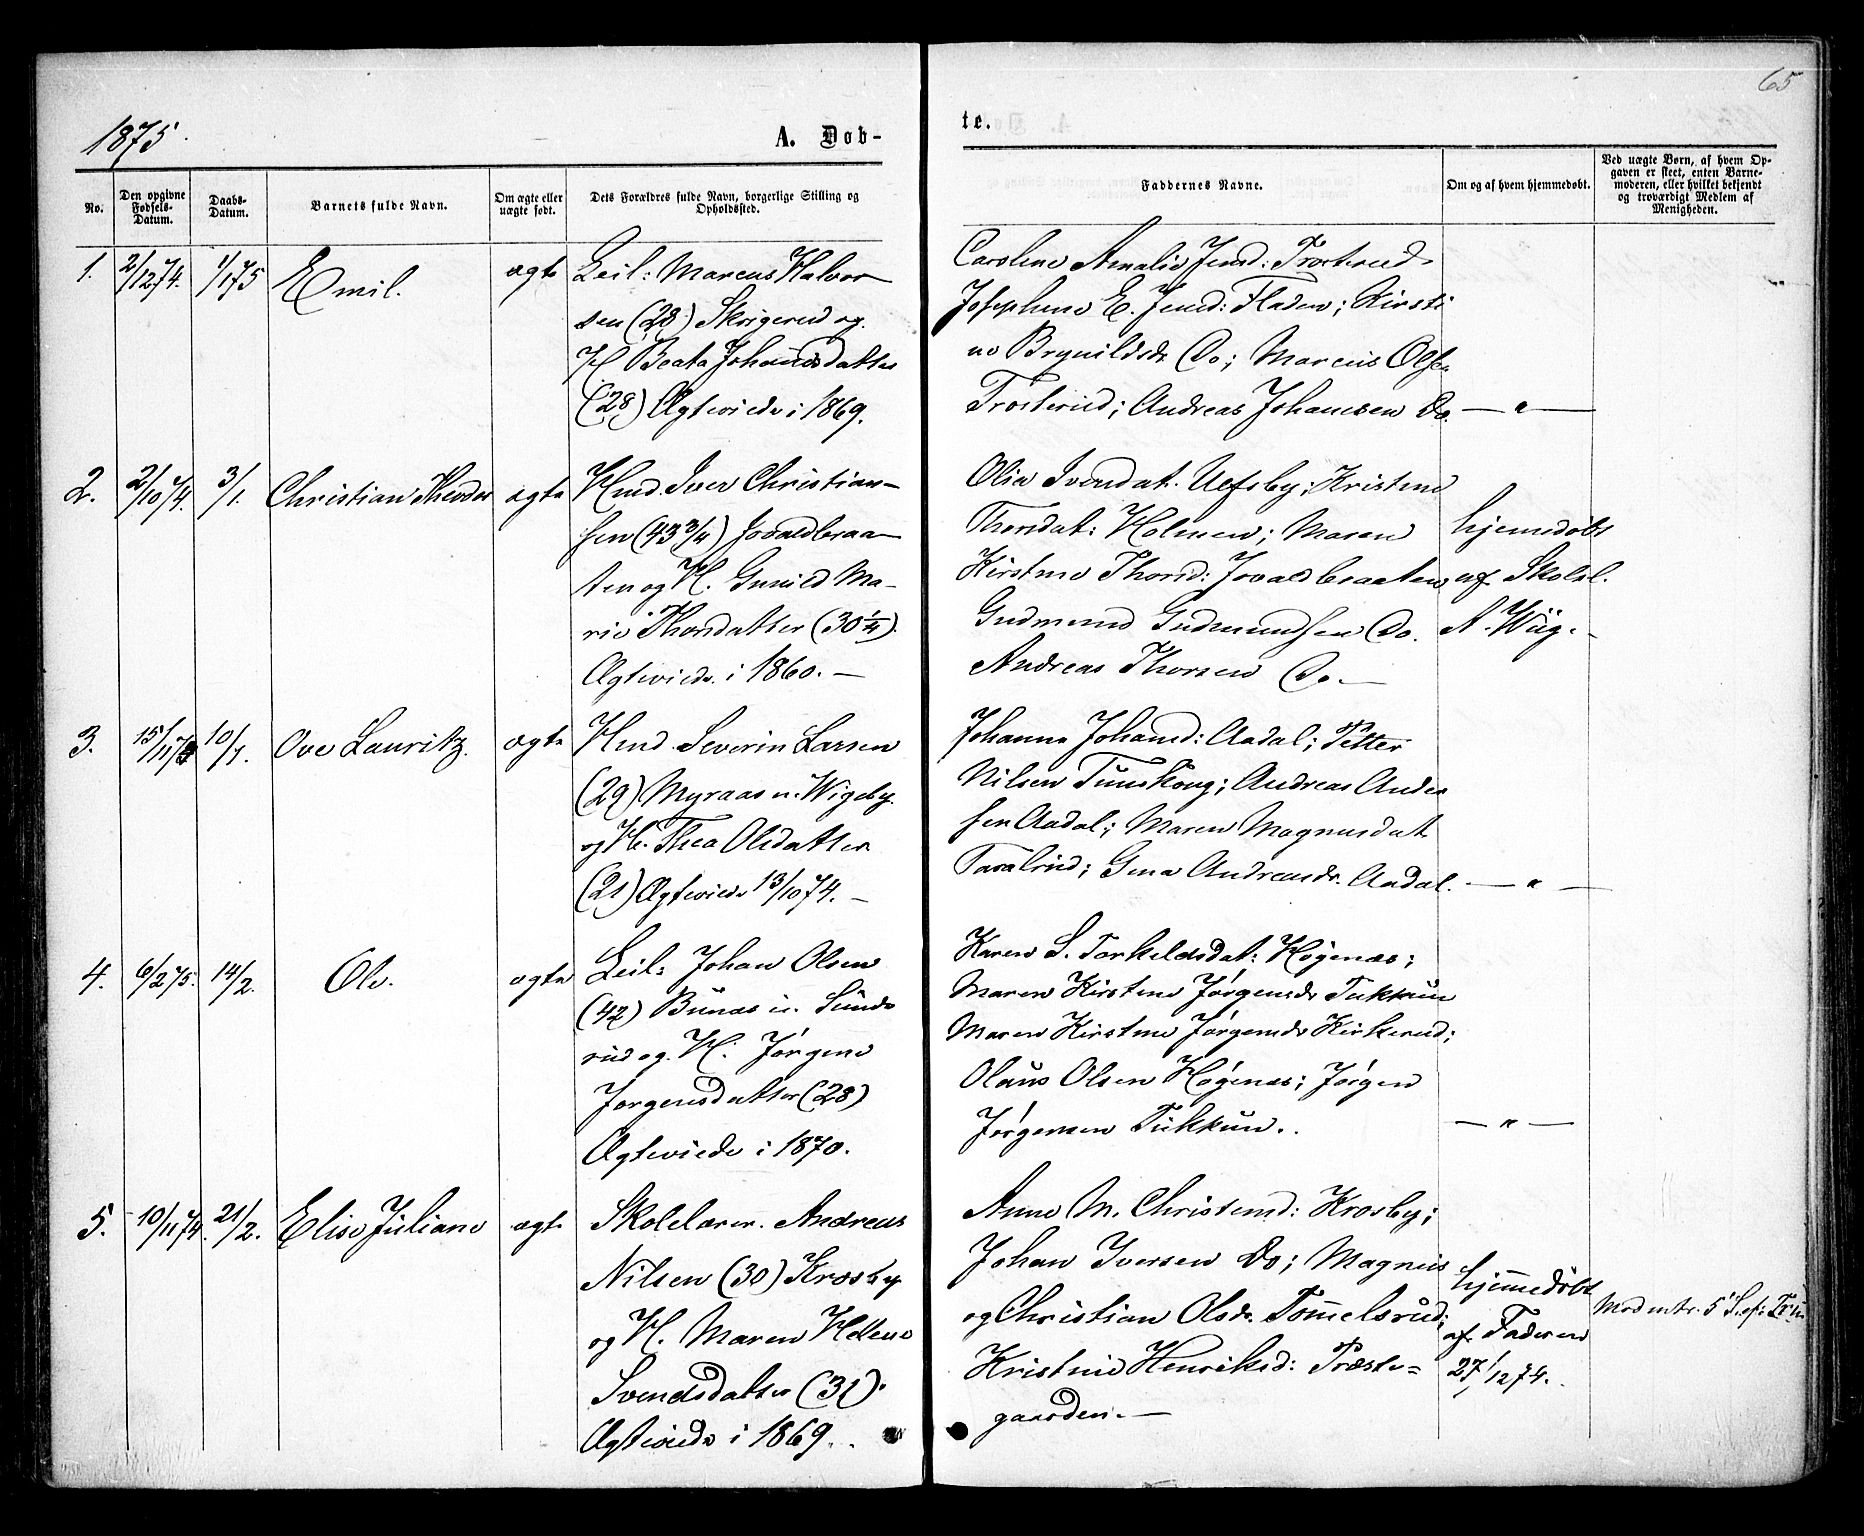 65
1875.
A. Döb-
te.
No.
Den opgivne
Fødsels-
Datum.
Daabs-
Datum.
Barnets fulde Navn.
Om ægte eller
uægte født.
Dets Forældres fulde Navn, borgerlige Stilling og
Opholdssted.
Faddernes Navne.
Om og af hvem hjemmedøbt.
Ved uægte Børn, af hvem Op-
gaven er skeet, enten Barne-
moderen, eller hvilket bekjendt
og troværdigt Medlem af
Menigheden.
1. 2/12 74. 1/1 75 Emil. ægte Leil: Marcus Halvor
sen (28) Skrigerud og.
H Beata Johannsdatter
(28) Ægteviede i 1869.
Caroline Amalie Jensd: Trosterud
Josephine E. Jensd: Fladen; Kirsti
ne Brynildsdr Do; Marcus Olsen
Trosterud; Andreas Johansen Do. — " —
2. 2/10 74. 3/1. Christian Theodor ægte Hmd. Iver Christian-
sen (43 3/4) Jovaldbraa-
ten og H. Gunild Ma-
rie Thorsdatter (30 1/4).
Ægteviede. i 1860. —
Olia Svendat. Ucfsby; Kristine
Thorsdat: Holmen; Maren
Kirstine Thorsd: Jovaldbraaten
Gudmund Gudmundsen Do.
Andreas Thorsen Do. —
hjemedøbt
af Skolel.
A. Wiig. -
3. 15/11 74 10/1. Ove Lauritz. ægte Hmd Severin Larsen
(29) Myraas u. Wigeby.
og H. Thea Olsdatter
(21) Ægteviede 13/10 74. —
Johanne Johansd: Aadal; Petter
Nilsen Tunskoug; Andreas Ander
sen Aadal; Maren Magnusdat
Taralrud; Gina Andreasdr. Aadal. — " —
4. 6/2 75. 14/2. Ole. ægte Leil: Johan Olsen
(42) Bunæs u. Sunde
rud og. H. Jørgine
Jørgensdatter (28)
Ægteviede i 1870.
Karen S. Torkeldsdat: Høgenæs;
Maren Kirstine Jørgensdr Tukkun
Maren Kirstine Jørgensdr Kirkerud;
Olaus Olsen Høgenæs; Jørgen
Jørgensen Tukkun. . — " —
5. 10/11 74. 21/2. Elise Juliane ægte Skolelærer. Andreas
Nilsen (30) Krosby
og H. Maren Hellene
Svendsdatter (31).
Ægteviede i 1869. .
Anne M. Christensd: Krosby;
Johan Iversen Do; Magnus
og Christian Olsdr. Tom̅elsrud;
Kristine Henriksd: Præste-
gaarden. —
hjem̅edøbt
af Faderen
27/12 74.